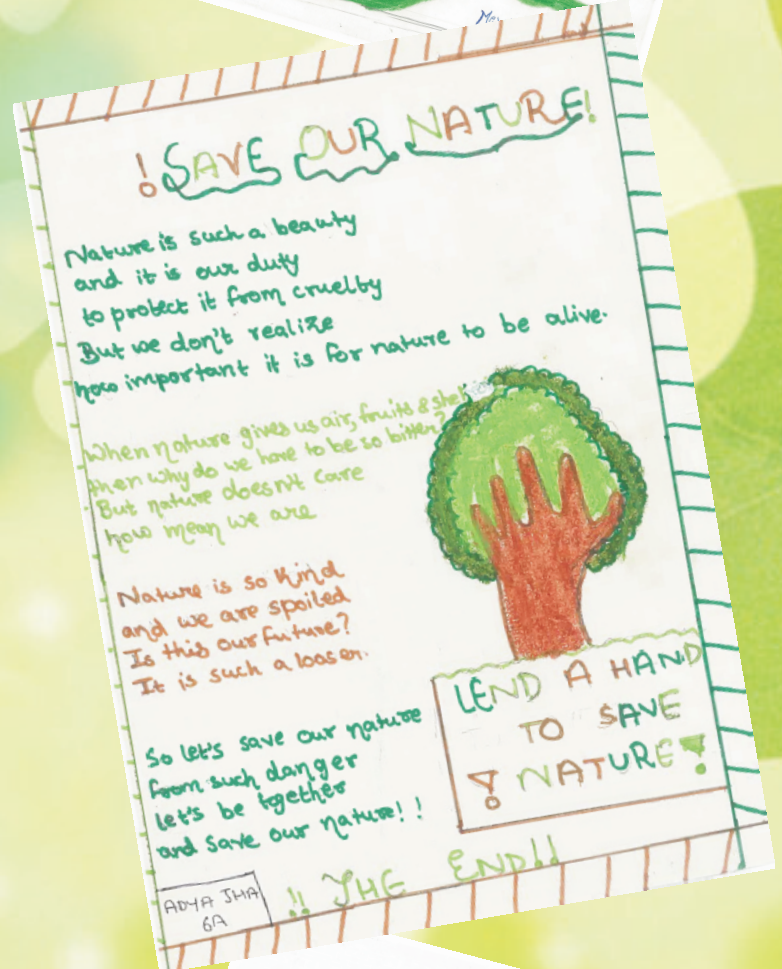 ! SAVE OUR NATURE!
Nature is such a beauty
and it is our duty
to protect it from cruelty
But we don't realize
how important it is for nature to be alive.
When nature gives us air, fruits &
then why do we have to be so bitter?
But nature doesn't care
how mean we are
Nature is so kind
and we are spoiled
Is this our future?
It is such a looser.
So let's save our nature
from such danger
let's be together
and save our nature!!
LEND A HAND
TO SAVE
! NATURE!
!! THE END!!
ADYA JHA
6A